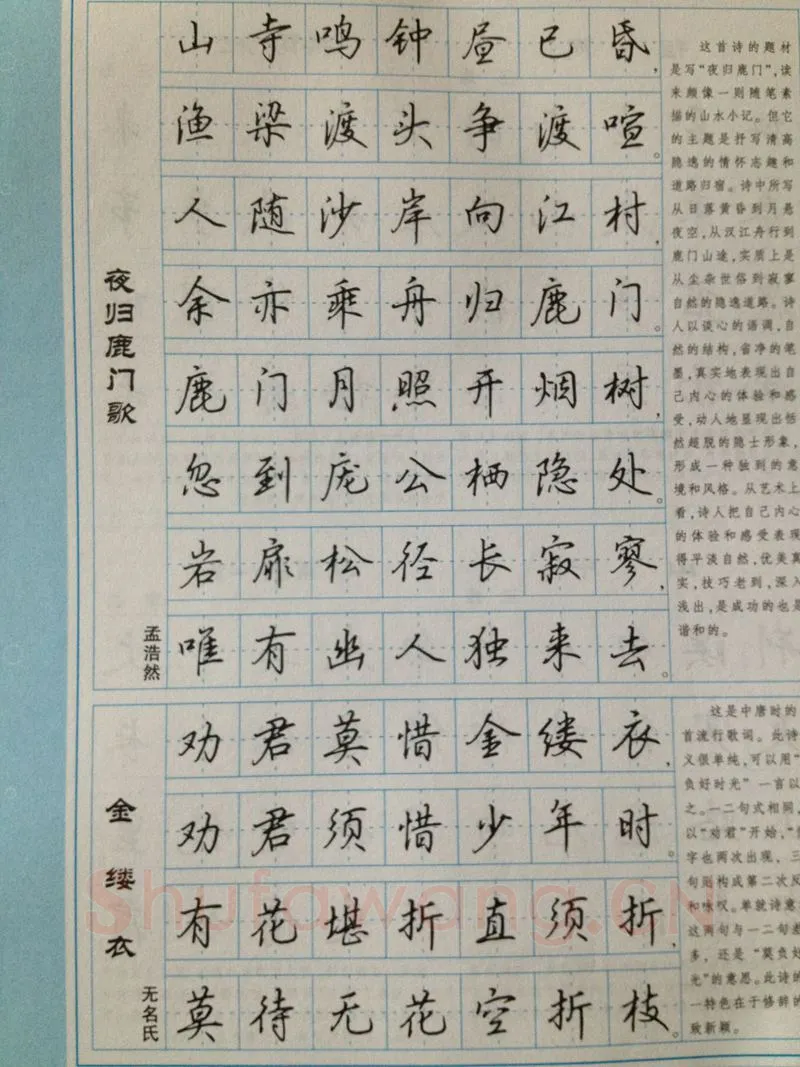 夜归鹿门歌
孟浩然
山寺鸣钟昼已昏，
渔梁渡头争渡喧。
人随沙岸向江村，
余亦乘舟归鹿门。
鹿门月照开烟树，
忽到庞公栖隐处。
岩扉松径长寂寥，
唯有幽人独来去。
这首诗的题材
是写“夜归鹿门”，读
来颇像一则随笔素
描的山水小记。但它
的主题是抒写清高
隐逸的情怀志趣和
道路归宿。诗中所写
从日落黄昏到月悬
夜空，从汉江舟行到
鹿门山途，实质上是
从尘杂世俗到寂寥
自然的隐逸道路。诗
人以谈心的语调，自
然的结构，省净的笔
墨，真实地表现出自
己内心的体验和感
受，动人地显现出恬
然超脱的隐士形象，
形成一种独到的意
境和风格。从艺术上
看，诗人把自己内心
的体验和感受表现
得平淡自然，优美真
实，技巧老到，深入
浅出，是成功的也是
谐和的。
金缕衣
无名氏
劝君莫惜金缕衣，
劝君须惜少年时。
有花堪折直须折，
莫待无花空折枝。
这是中唐时的
首流行歌词。此诗
义很单纯，可以用“
负好时光”一言以
之。一二句式相同，
以“劝君”开始，“
字也两次出现，三
句则构成第二次反
和咏叹。单就诗意
这两句与一二句差
多，还是“莫负好
光”的意思。此诗的
一特色在于修辞的
致新颖。
Shufawang.CN